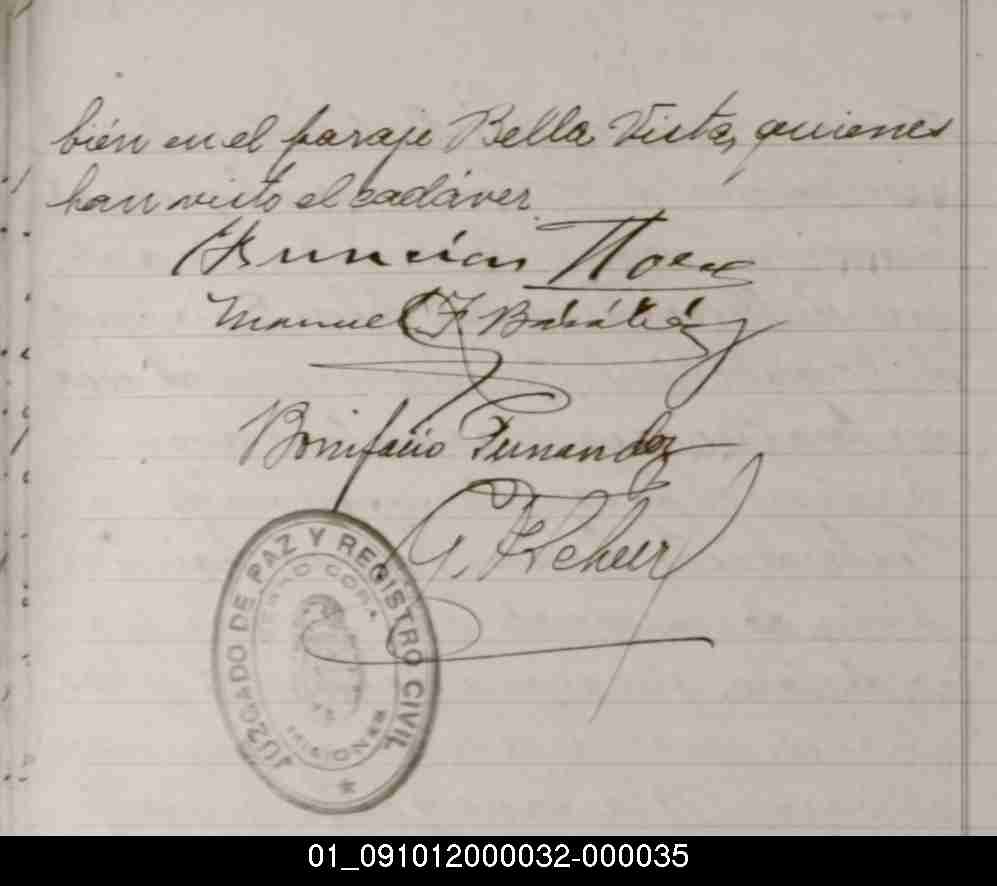 bién en el paraje Bella Vista, quienes
han visto el cadáver.
Manuel F
Bonifacio Fernandez
G.
JUZGADO DE PAZ Y REGISTRO CIVIL
CERRO CORA
MISIONES
01_091012000032-000035